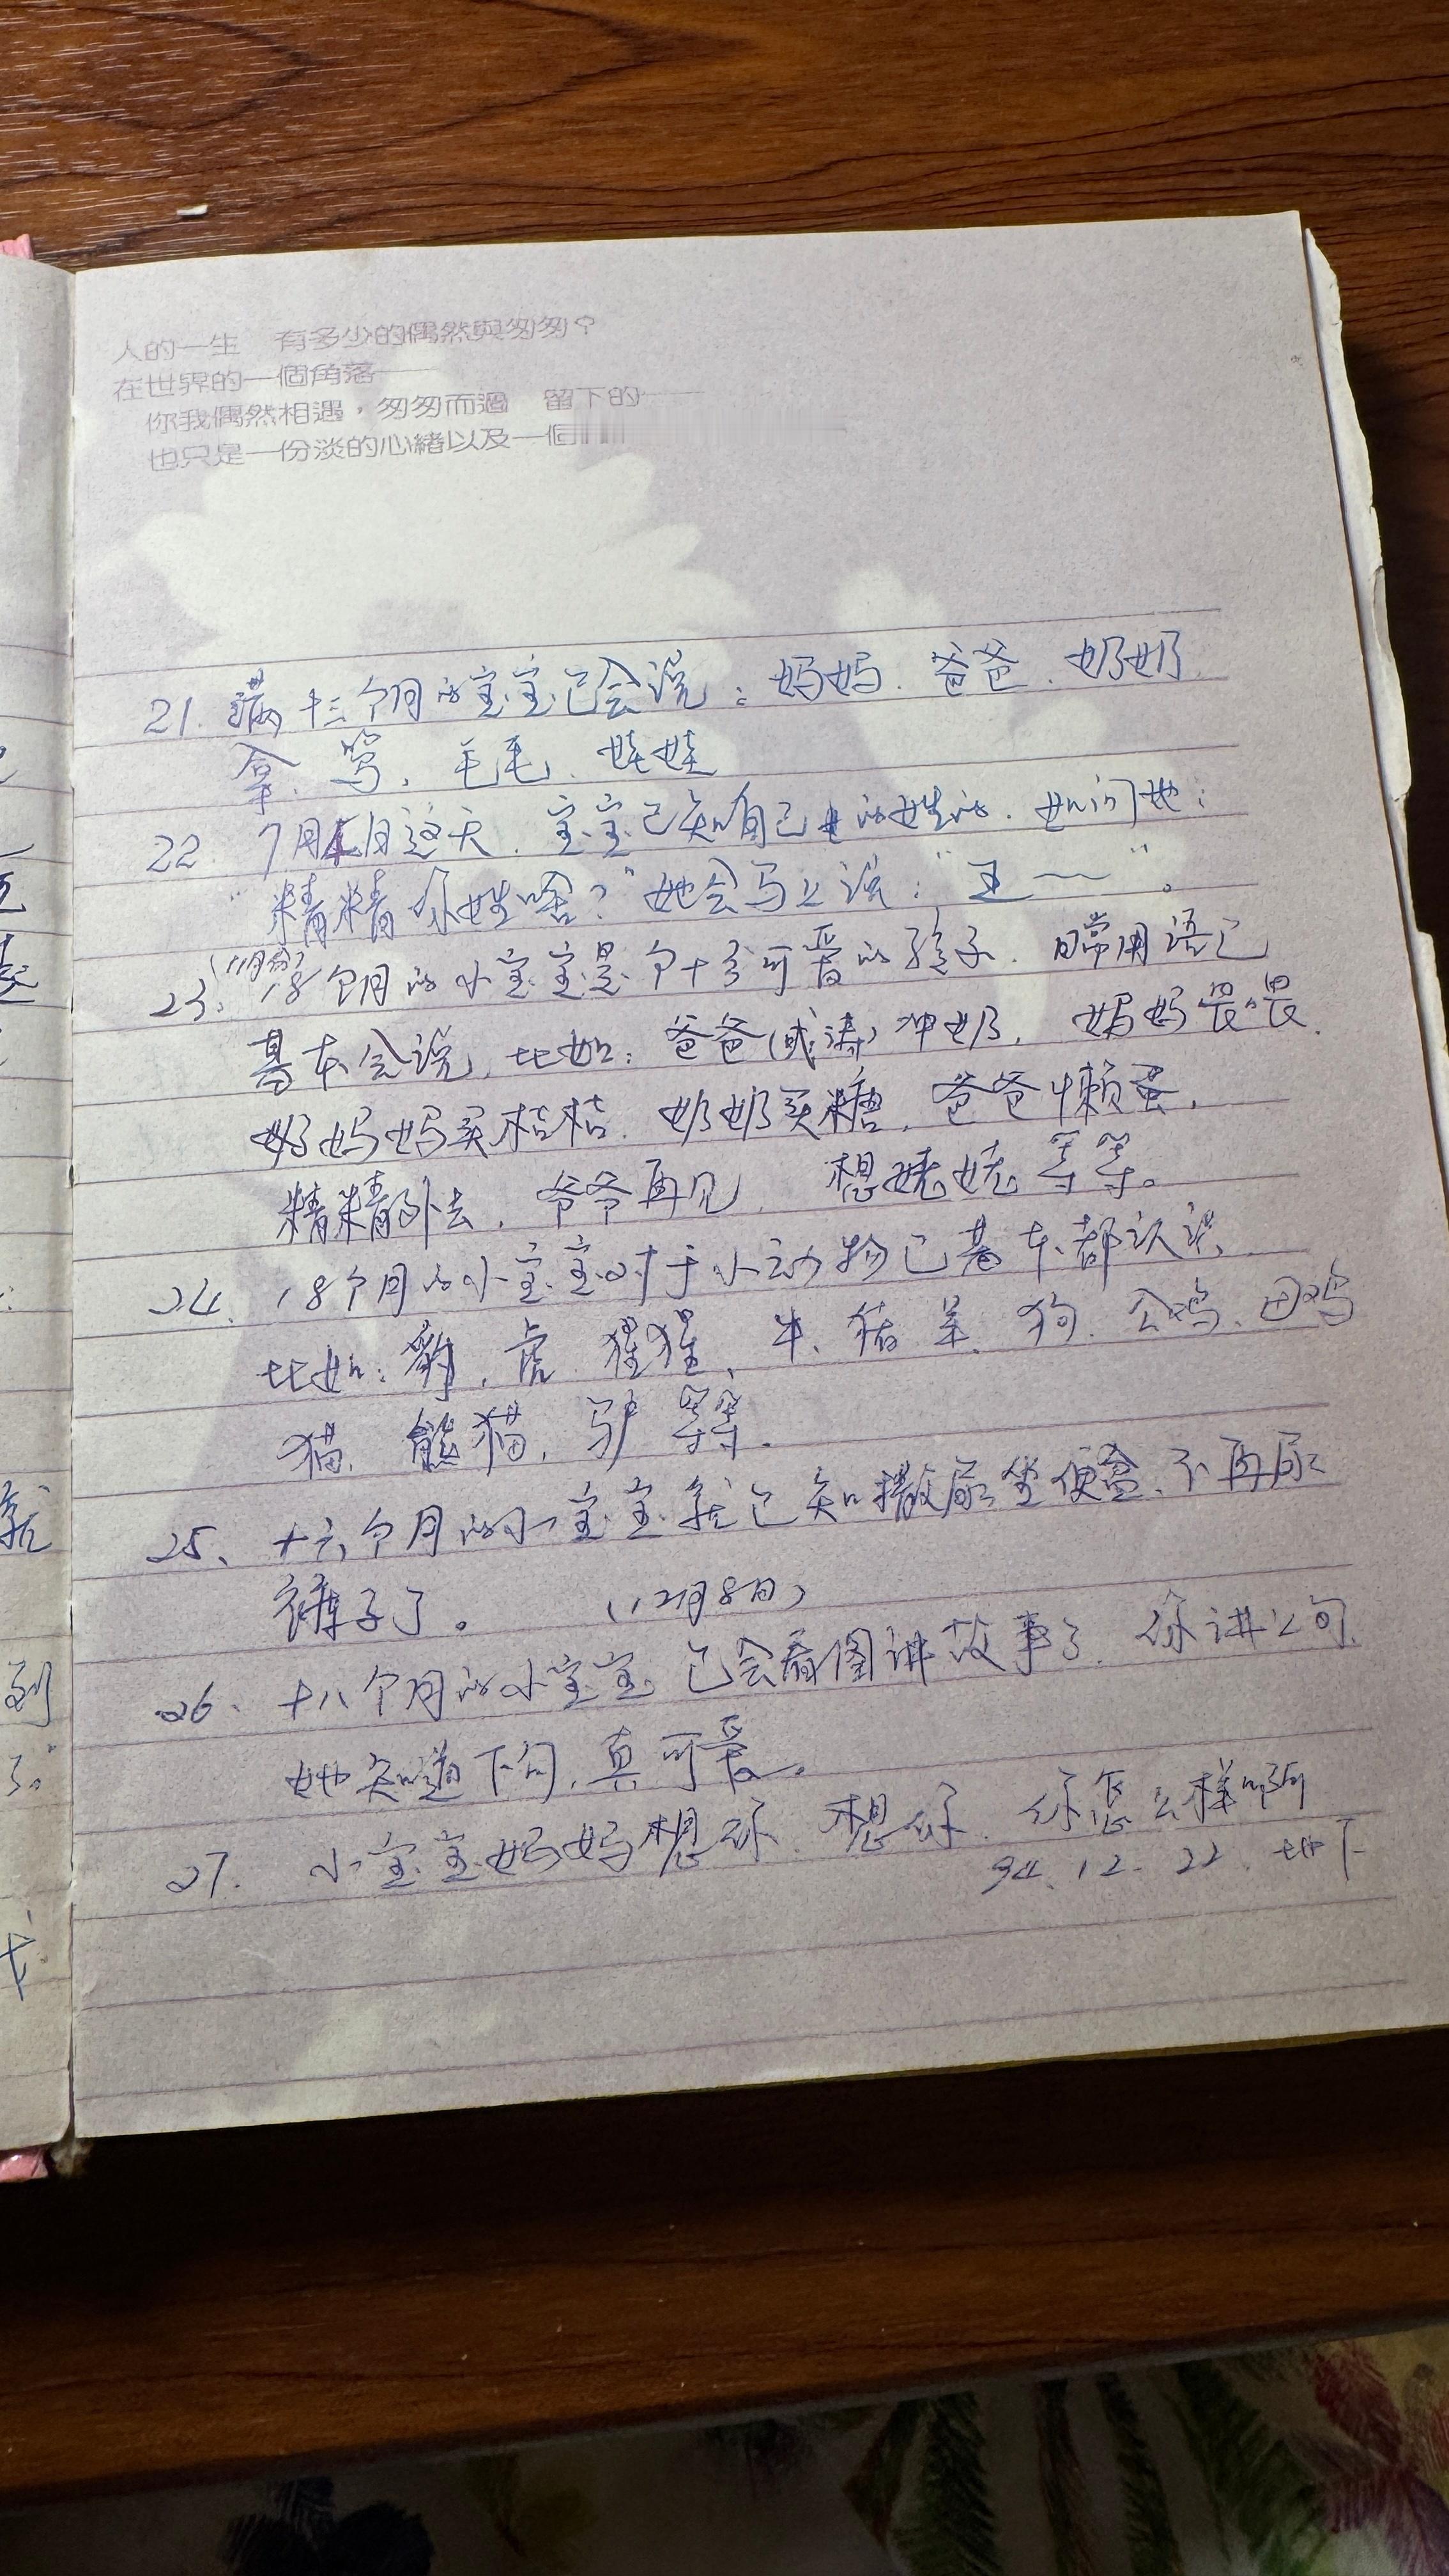 人的一生　有多少的偶然與匆匆？
在世界的一個角落——
你我偶然相遇，匆匆而過　留下的——
也只是一份淡的心緒以及一個
21. 满十三个月的宝宝已会说：妈妈、爸爸、奶奶
拿、写、毛毛、娃娃
22. 7月4日这天，宝宝已知自己的姓的，如问她：
“精精你姓啥？”她会马上说：“王——”。
(11月份)
23. 18个月的小宝宝是个十分可爱的孩子，日常用语已
基本会说，比如：爸爸(成涛)冲奶，妈妈喂喂，
妈妈买桔桔，奶奶买糖，爸爸懒蛋，
精精外去，爷爷再见，想姥姥等等。
24. 18个月的小宝宝对于小动物已基本都认识
比如：豹、虎、猩猩、牛、猪、羊、狗、公鸡、母鸡
猫、熊猫、驴等等。
25、十六个月的小宝宝就已知撒尿坐便盆、不再尿
裤子了。 （12月8日）
26、十八个月的小宝宝已会看图讲故事了，你讲上句，
她知道下句，真可爱。
27. 小宝宝妈妈想你，想你，你怎么样啊
94.12.22. 地下